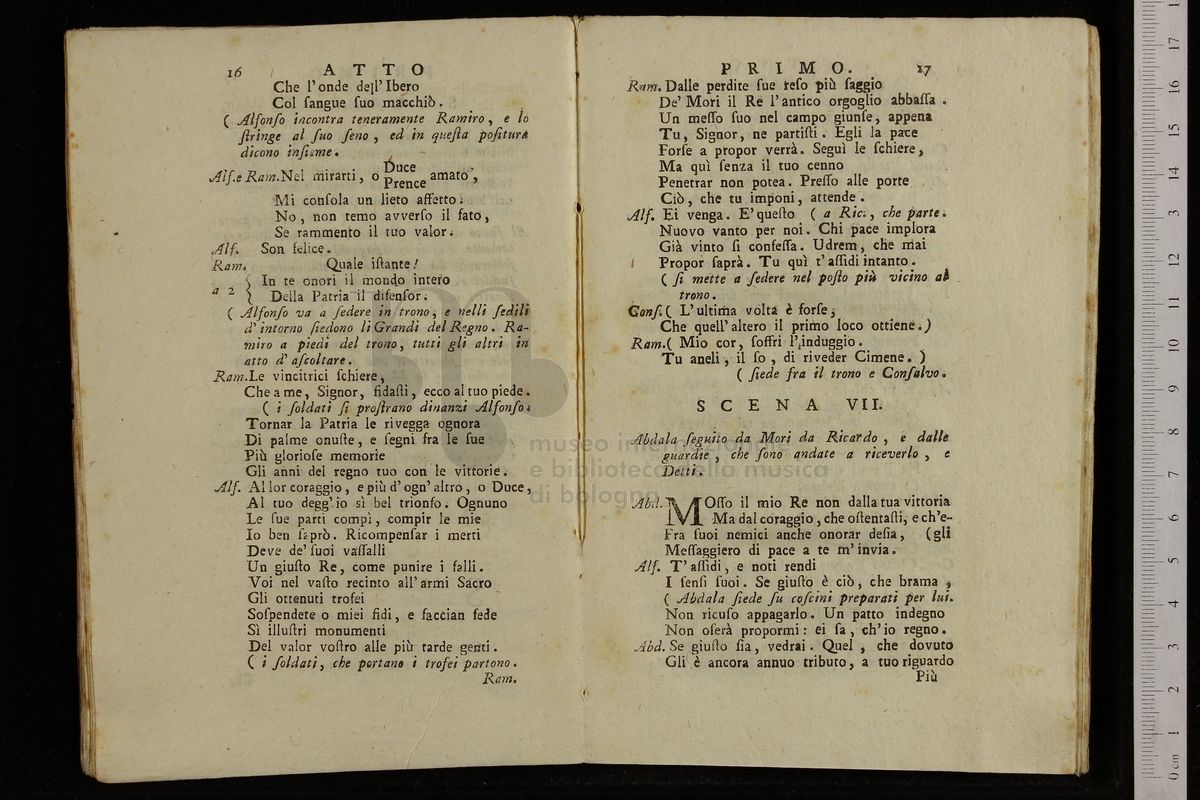 16 ATTO
Che l'onde dell'Ibero
Col ſangue ſuo macchiò.
( Alfonſo incontra teneramente Ramiro, e lo
ſtringe al ſuo ſeno, ed in queſta poſitura
dicono inſieme.
Alf.e Ram. Nel mirarti, o Duce
Prence amato,
Mi conſola un lieto affetto:
No, non temo avverſo il fato,
Se rammento il tuo valor.
Alf. Son felice.
Ram. Quale iſtante!
a 2 { In te onori il mondo intero
Della Patria il difenſor.
( Alfonſo va a ſedere in trono, e nelli ſedili
d'intorno ſiedono li Grandi del Regno. Ra-
miro a piedi del trono, tutti gli altri in
atto d'aſcoltare.
Ram. Le vincitrici ſchiere,
Che a me, Signor, fidaſti, ecco al tuo piede.
( i ſoldati ſi proſtrano dinanzi Alfonſo.
Tornar la Patria le rivegga ognora
Di palme onuſte, e ſegni fra le ſue
Più glorioſe memorie
Gli anni del regno tuo con le vittorie.
Alf. Al lor coraggio, e più d'ogn'altro, o Duce,
Al tuo degg'io sì bel trionfo. Ognuno
Le ſue parti compì, compir le mie
Io ben ſaprò. Ricompenſar i merti
Deve de' ſuoi vaſſalli
Un giuſto Re, come punire i falli.
Voi nel vaſto recinto all'armi Sacro
Gli ottenuti trofei
Soſpendete o miei fidi, e faccian fede
Sì illuſtri monumenti
Del valor voſtro alle più tarde genti.
( i ſoldati, che portano i trofei partono.
Ram.
PRIMO. 17
Ram. Dalle perdite ſue reſo più ſaggio
De' Mori il Re l'antico orgoglio abbaſſa.
Un meſſo ſuo nel campo giunſe, appena
Tu, Signor, ne partiſti. Egli la pace
Forſe a propor verrà. Seguì le ſchiere,
Ma quì ſenza il tuo cenno
Penetrar non potea. Preſſo alle porte
Ciò, che tu imponi, attende.
Alf. Ei venga. E'queſto ( a Ric., che parte.
Nuovo vanto per noi. Chi pace implora
Già vinto ſi confeſſa. Udrem, che mai
Propor ſaprà. Tu quì t'aſſidi intanto.
( ſi mette a ſedere nel poſto più vicino al
trono.
Conſ. ( L'ultima volta è forſe,
Che quell'altero il primo loco ottiene.)
Ram. ( Mio cor, ſoffri l'induggio.
Tu aneli, il ſo, di riveder Cimene. )
( ſiede fra il trono e Conſalvo.
SCENA VII.
Abdala ſeguito da Mori da Ricardo, e dalle
guardie, che ſono andate a riceverlo, e
Detti.
Abd. MOſſo il mio Re non dalla tua vittoria
Ma dal coraggio, che oſtentaſti, e ch'e-
Fra ſuoi nemici anche onorar deſia, (gli
Meſſaggiero di pace a te m'invia.
Alf. T'aſſidi, e noti rendi
I ſenſi ſuoi. Se giuſto è ciò, che brama,
( Abdala ſiede ſu coſcini preparati per lui.
Non ricuſo appagarlo. Un patto indegno
Non oſerà propormi: ei ſa, ch'io regno.
Abd. Se giuſto ſia, vedrai. Quel, che dovuto
Gli è ancora annuo tributo, a tuo riguardo
Più
museo internazionale
e biblioteca della musica
di bologna
0 cm 1 2 3 4 5 6 7 8 9 10 11 12 13 14 15 16 17